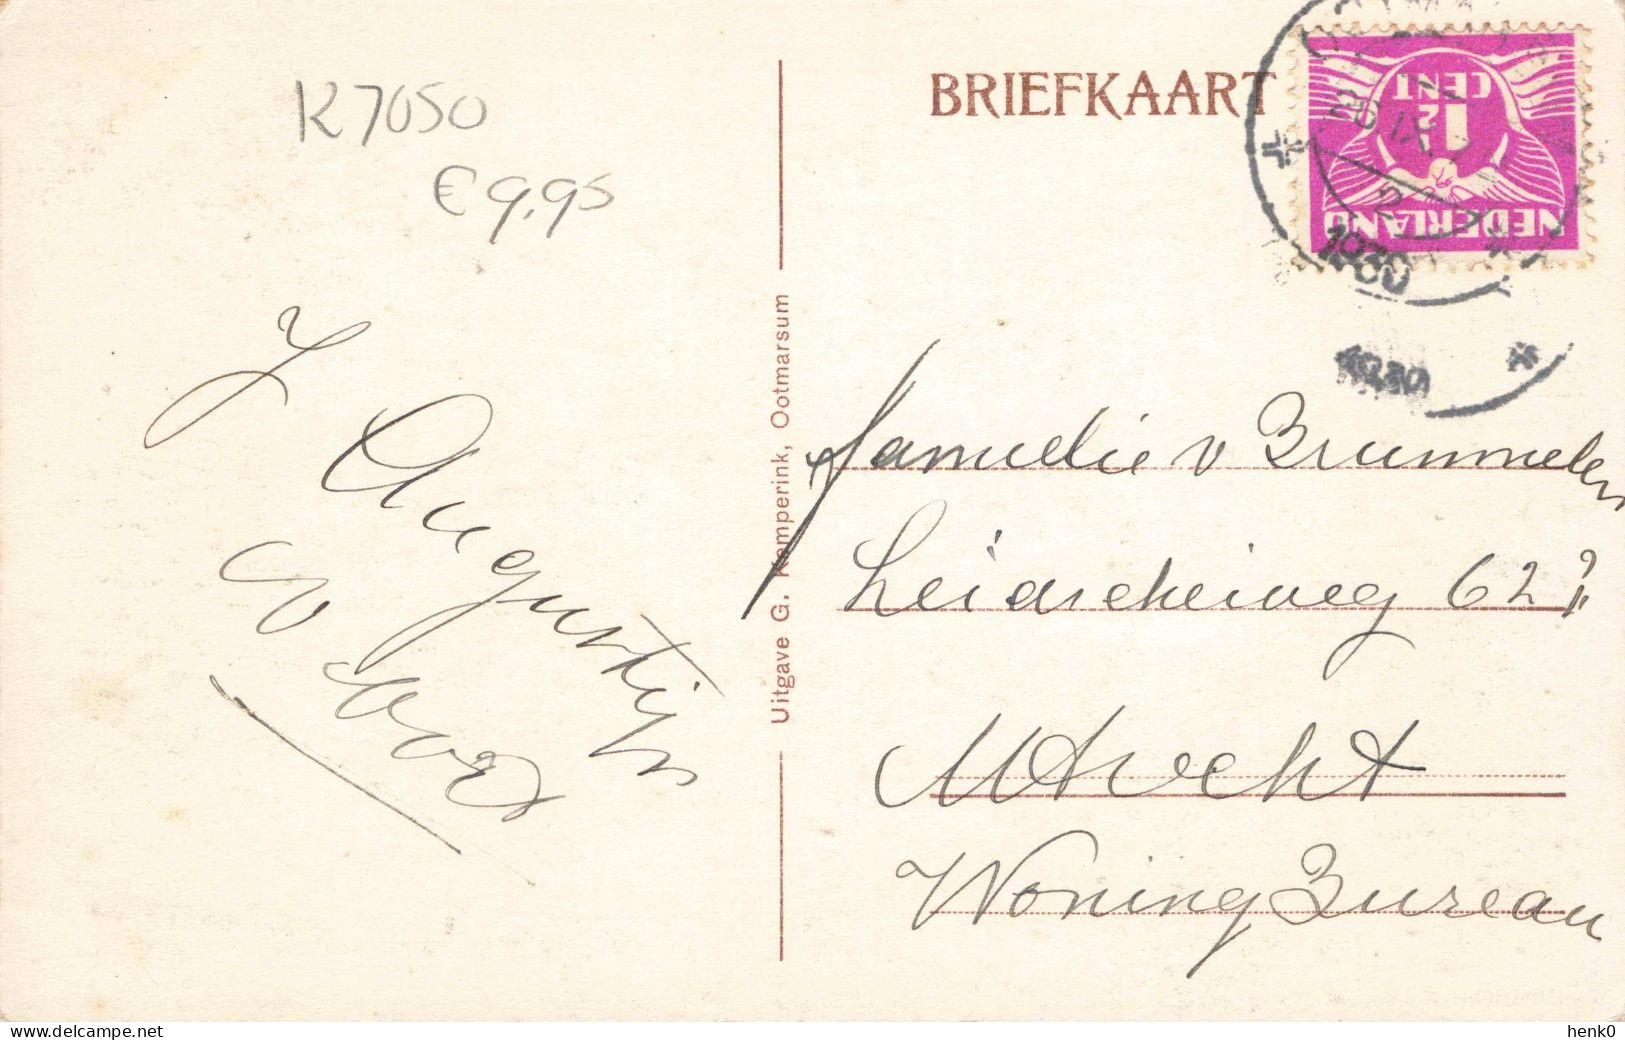 K7050
€ 9,95
BRIEFKAART
NEDERLAND
1½
CENT
20 IX
2
1930
1930
Uitgave G. Kamperink, Ootmarsum
J Augustijn
Familie v Brummelen
Leidscheiweg 62
Utrecht
Woning Bureau
www.delcampe.net
henk0